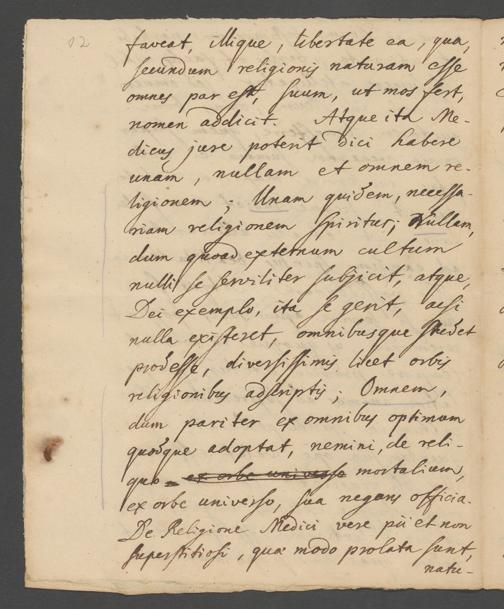 12
faveat, illique, libertate ea, qua,
secundum religionis naturam esse
omnes par est, suum, ut mos fert,
nomen addicit. Atque ita Me-
dicus jure poterit dici habere
unam, nullam et omnem re-
ligionem; Unam quidem, necessa-
riam religionem Spiritus; Nullam,
dum quoad externum cultum
nulli se serviliter subjicit, atque,
Dei exemplo, ita se gerit, acsi
nulla existeret, omnibusque studet
prodesse, diversissimis licet orbis
religionibus adscriptis; Omnem,
dum pariter ex omnibus optimum
quodque adoptat, nemini, de reli-
quo ex orbe universo mortalium,
ex orbe universo, sua negans officia.
De Religione Medici vere pii et non
superstitiosi, quæ modo prolata sunt,
natu-